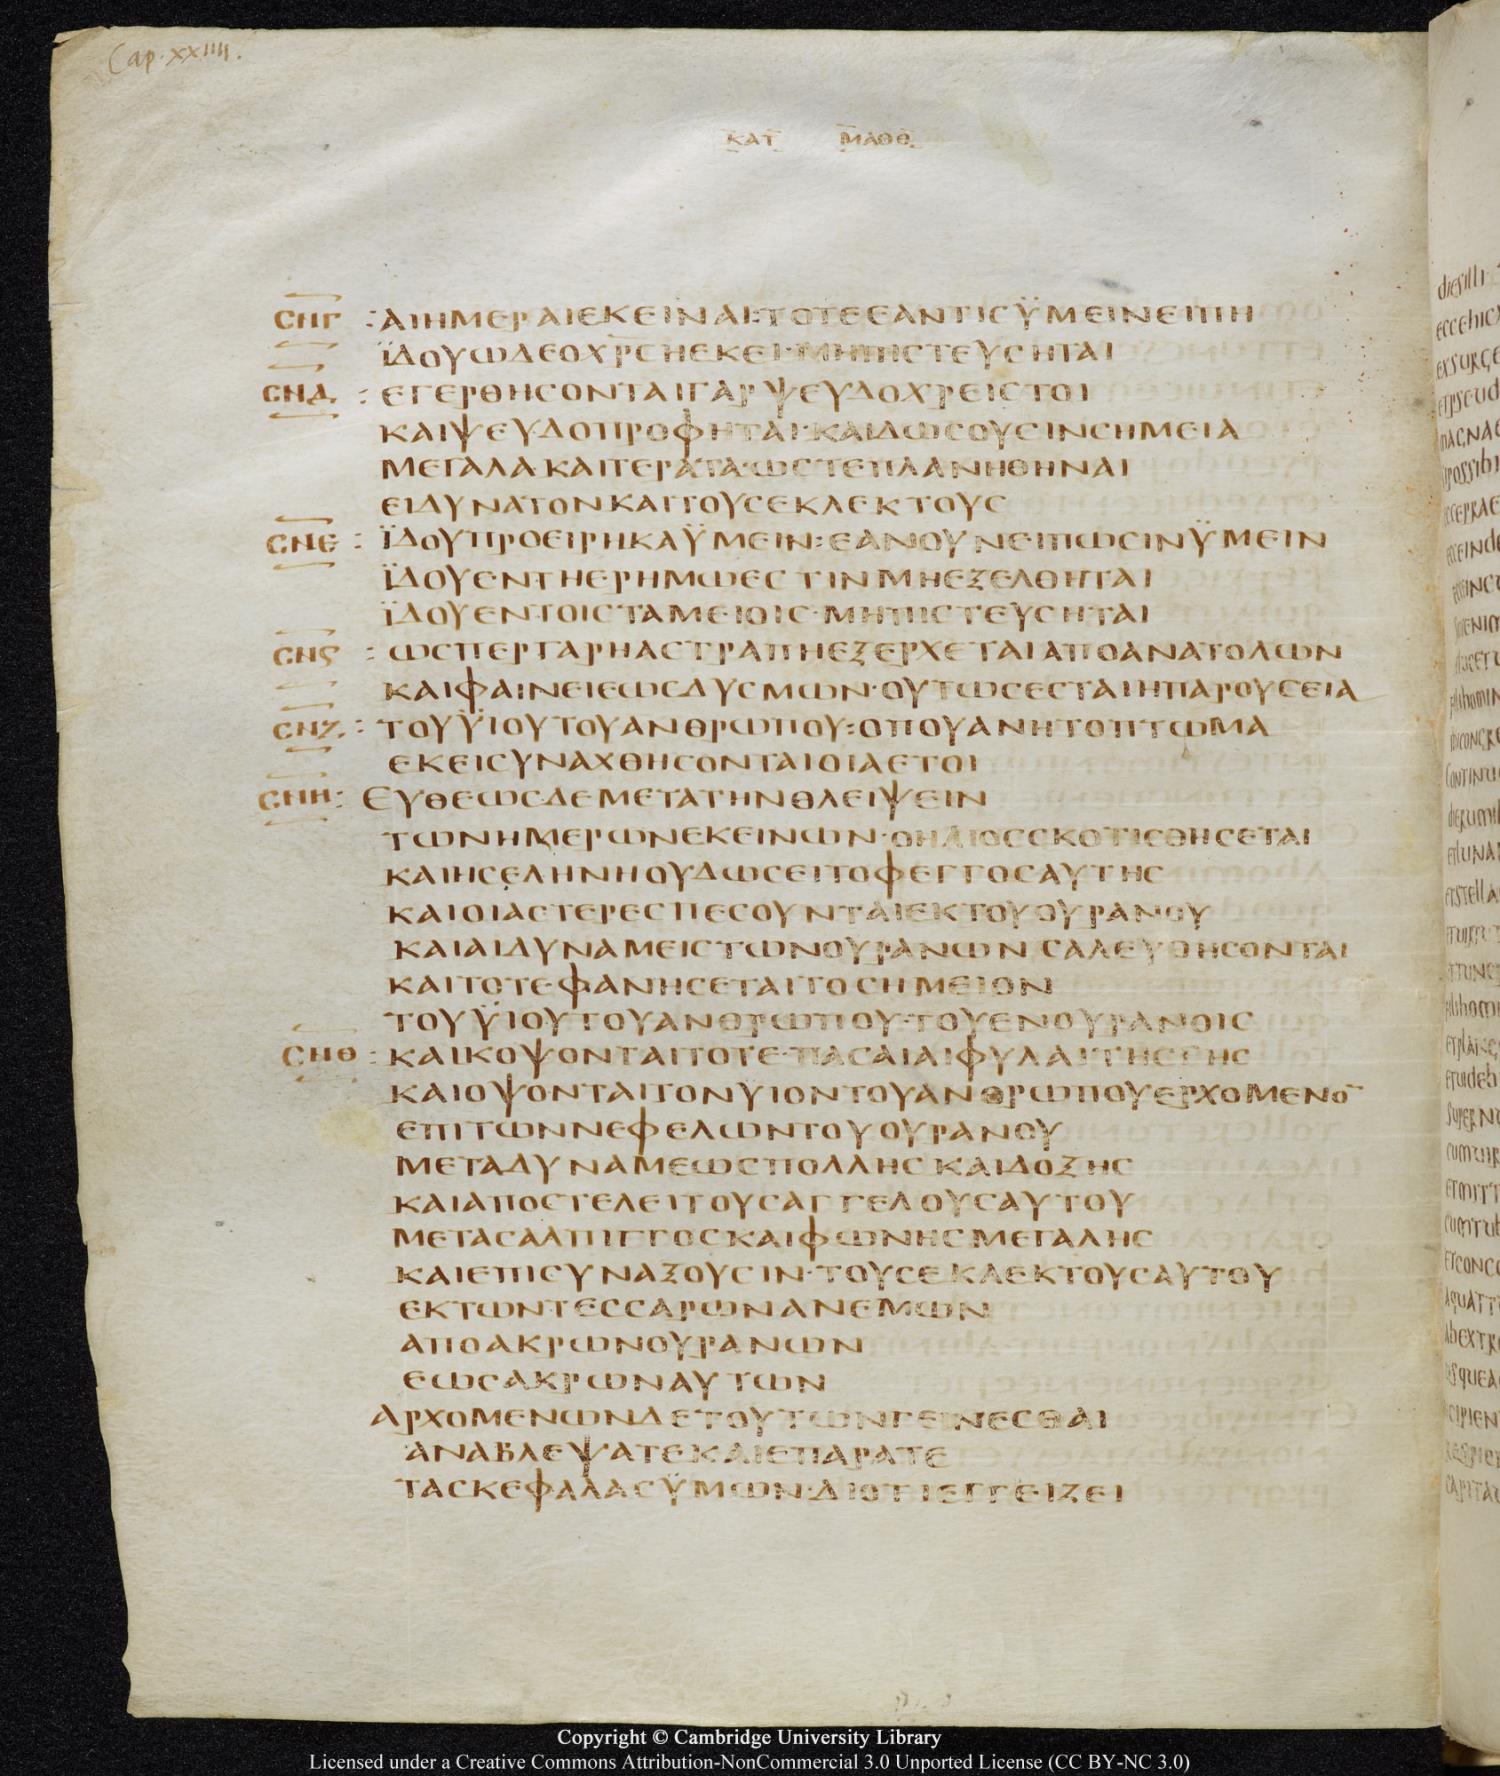 Cap. xxiiii.
ΚΑΤ ΜΑΘΘ
ϹΝΓ : ΑΙΗΜΕΡΑΙΕΚΕΙΝΑΙ:ΤΟΤΕΕΑΝΤΙϹΫΜΕΙΝΕΙΠΗ
ΪΔΟΥΩΔΕΟΧΡ̅ϹΗΕΚΕΙ·ΜΗΠΙϹΤΕΥϹΗΤΑΙ
ϹΝΔ : ΕΓΕΡΘΗϹΟΝΤΑΙΓΑΡΨΕΥΔΟΧΡΕΙϹΤΟΙ
ΚΑΙΨΕΥΔΟΠΡΟΦΗΤΑΙ·ΚΑΙΔΩϹΟΥϹΙΝϹΗΜΕΙΑ
ΜΕΓΑΛΑ·ΚΑΙΤΕΡΑΤΑ·ΩϹΤΕΠΛΑΝΗΘΗΝΑΙ
ΕΙΔΥΝΑΤΟΝΚΑΙΤΟΥϹΕΚΛΕΚΤΟΥϹ
ϹΝΕ : ΪΔΟΥΠΡΟΕΙΡΗΚΑΫΜΕΙΝ:ΕΑΝΟΥΝΕΙΠΩϹΙΝΫΜΕΙΝ
ΪΔΟΥΕΝΤΗΕΡΗΜΩΕϹΤΙΝΜΗΕΞΕΛΘΗΤΑΙ
ΪΔΟΥΕΝΤΟΙϹΤΑΜΕΙΟΙϹ·ΜΗΠΙϹΤΕΥϹΗΤΑΙ
ϹΝϚ : ΩϹΠΕΡΓΑΡΗΑϹΤΡΑΠΗΕΞΕΡΧΕΤΑΙΑΠΟΑΝΑΤΟΛΩΝ
ΚΑΙΦΑΙΝΕΙΕΩϹΔΥϹΜΩΝ·ΟΥΤΩϹΕϹΤΑΙΗΠΑΡΟΥϹΕΙΑ
ϹΝΖ : ΤΟΥΫΙΟΥΤΟΥΑΝΘΡΩΠΟΥ:ΟΠΟΥΑΝΗΤΟΠΤΩΜΑ
ΕΚΕΙϹΥΝΑΧΘΗϹΟΝΤΑΙΟΙΑΕΤΟΙ
ϹΝΗ : ΕΥΘΕΩϹΔΕΜΕΤΑΤΗΝΘΛΕΙΨΕΙΝ
ΤΩΝΗΜΕΡΩΝΕΚΕΙΝΩΝ·ΟΗΛΙΟϹϹΚΟΤΙϹΘΗϹΕΤΑΙ
ΚΑΙΗϹΕΛΗΝΗΟΥΔΩϹΕΙΤΟΦΕΓΓΟϹΑΥΤΗϹ
ΚΑΙΟΙΑϹΤΕΡΕϹΠΕϹΟΥΝΤΑΙΕΚΤΟΥΟΥΡΑΝΟΥ
ΚΑΙΑΙΔΥΝΑΜΕΙϹΤΩΝΟΥΡΑΝΩΝ ϹΑΛΕΥΘΗϹΟΝΤΑΙ
ΚΑΙΤΟΤΕΦΑΝΗϹΕΤΑΙΤΟϹΗΜΕΙΟΝ
ΤΟΥΫΙΟΥΤΟΥΑΝΘΡΩΠΟΥ·ΤΟΥΕΝΟΥΡΑΝΟΙϹ
ϹΝΘ : ΚΑΙΚΟΨΟΝΤΑΙΤΟΤΕ·ΠΑϹΑΙΑΙΦΥΛΑΙΤΗϹΓΗϹ
ΚΑΙΟΨΟΝΤΑΙΤΟΝΥΙΟΝΤΟΥΑΝΘΡΩΠΟΥΕΡΧΟΜΕΝΟ̅
ΕΠΙΤΩΝΝΕΦΕΛΩΝΤΟΥΟΥΡΑΝΟΥ
ΜΕΤΑΔΥΝΑΜΕΩϹΠΟΛΛΗϹΚΑΙΔΟΞΗϹ
ΚΑΙΑΠΟϹΤΕΛΕΙΤΟΥϹΑΓΓΕΛΟΥϹΑΥΤΟΥ
ΜΕΤΑϹΑΛΠΙΓΓΟϹΚΑΙΦΩΝΗϹΜΕΓΑΛΗϹ
ΚΑΙΕΠΙϹΥΝΑΞΟΥϹΙΝ·ΤΟΥϹΕΚΛΕΚΤΟΥϹΑΥΤΟΥ
ΕΚΤΩΝΤΕϹϹΑΡΩΝΑΝΕΜΩΝ
ΑΠΟΑΚΡΩΝΟΥΡΑΝΩΝ
ΕΩϹΑΚΡΩΝΑΥΤΩΝ
ΑΡΧΟΜΕΝΩΝΔΕΤΟΥΤΩΝΓΕΙΝΕϹΘΑΙ
ΑΝΑΒΛΕΨΑΤΕΚΑΙΕΠΑΡΑΤΕ
ΤΑϹΚΕΦΑΛΑϹΫΜΩΝ·ΔΙΟΤΙΕΓΓΕΙΖΕΙ
Copyright © Cambridge University Library
Licensed under a Creative Commons Attribution-NonCommercial 3.0 Unported License (CC BY-NC 3.0)